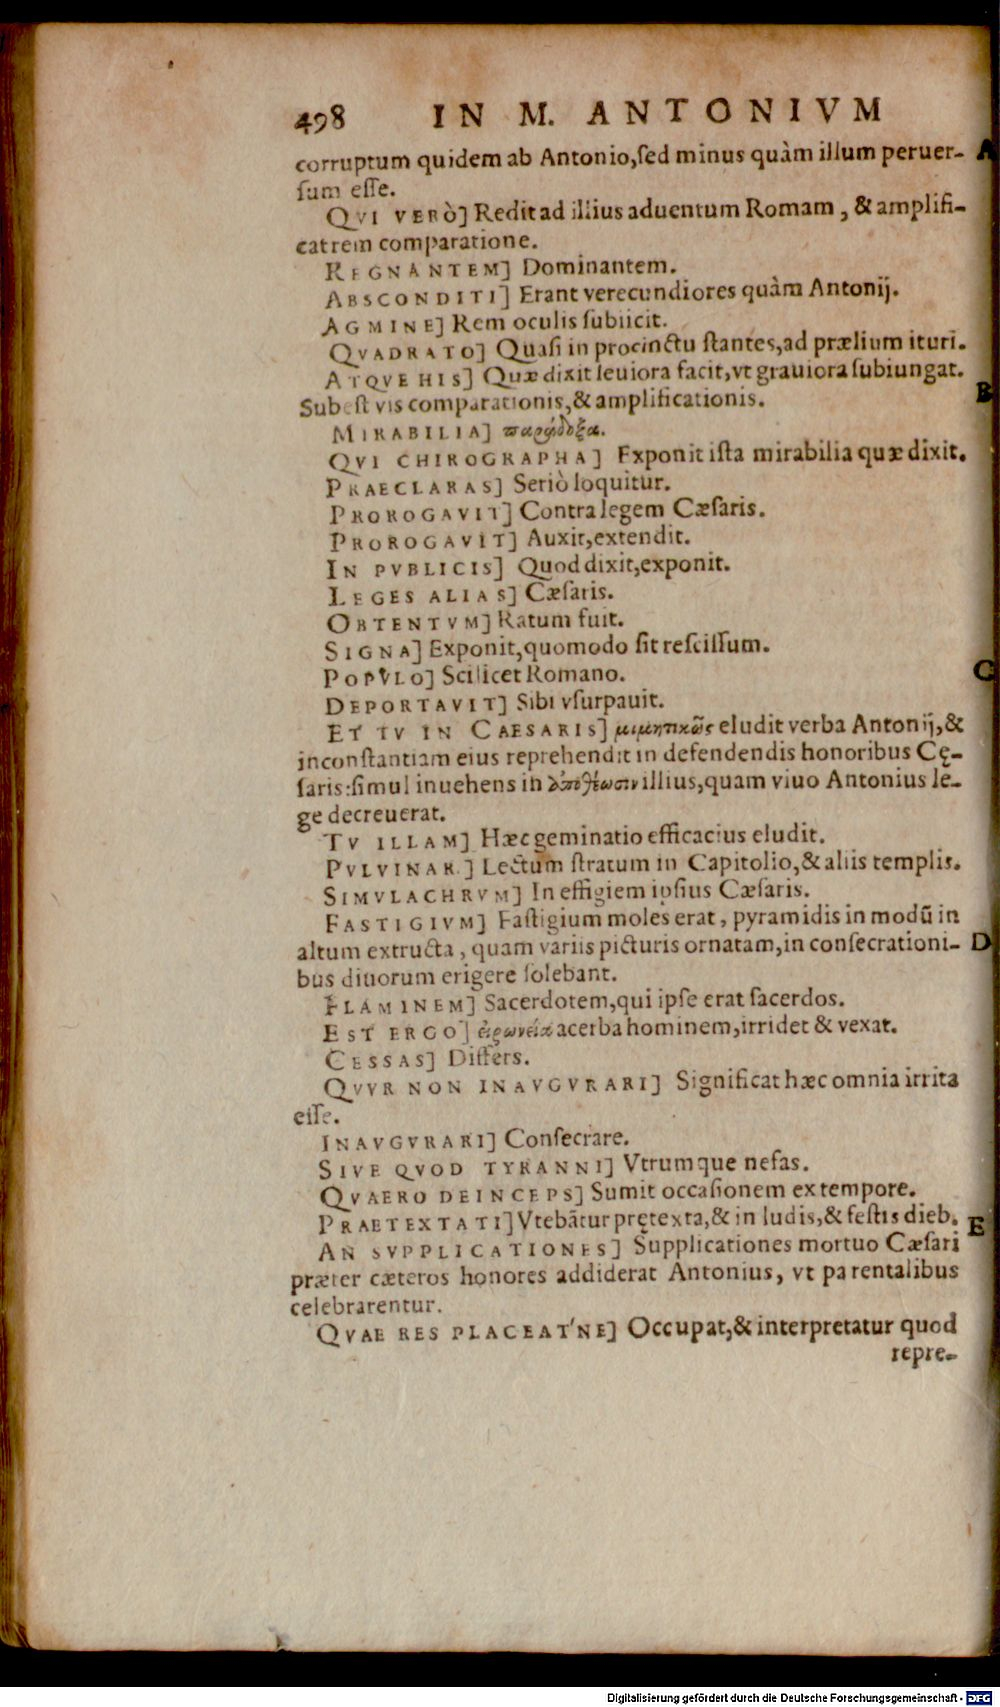 498 IN M. ANTONIVM
corruptum quidem ab Antonio,ſed minus quàm illum peruer- A
ſum eſſe.
QVI VERÒ] Redit ad illius aduentum Romam, & amplifi-
cat rem comparatione.
REGNANTEM] Dominantem.
ABSCONDITI] Erant verecundiores quàm Antonij.
AGMINE] Rem oculis ſubiicit.
QVADRATO] Quaſi in procinctu ſtantes,ad prælium ituri.
ATQVE HIS] Quæ dixit leuiora facit,vt grauiora ſubiungat.
Subeſt vis comparationis,& amplificationis. B
MIRABILIA] παράδοξα.
QVI CHIROGRAPHA] Exponit iſta mirabilia quæ dixit.
PRAECLARAS] Seriò loquitur.
PROROGAVIT] Contra legem Cæſaris.
PROROGAVIT] Auxit,extendit.
IN PVBLICIS] Quod dixit,exponit.
LEGES ALIAS] Cæſaris.
OBTENTVM] Ratum fuit.
SIGNA] Exponit,quomodo ſit reſciſſum.
POPVLO] Scilicet Romano. C
DEPORTAVIT] Sibi vſurpauit.
ET TV IN CAESARIS] μιμητικῶς eludit verba Antonij,&
inconſtantiam eius reprehendit in defendendis honoribus Cę-
ſaris:ſimul inuehens in ἀποθέωσιν illius,quam viuo Antonius le-
ge decreuerat.
TV ILLAM] Hæc geminatio efficacius eludit.
PVLVINAR.] Lectum ſtratum in Capitolio,& aliis templis.
SIMVLACHRVM] In effigiem ipſius Cæſaris.
FASTIGIVM] Faſtigium moles erat, pyramidis in modũ in
altum extructa, quam variis picturis ornatam,in conſecrationi- D
bus diuorum erigere ſolebant.
FLAMINEM] Sacerdotem,qui ipſe erat ſacerdos.
EST ERGO] εἰρωνείᾳ acerba hominem,irridet & vexat.
CESSAS] Differs.
QVVR NON INAVGVRARI] Significat hæc omnia irrita
eſſe.
INAVGVRARI] Conſecrare.
SIVE QVOD TYRANNI] Vtrumque nefas.
QVAERO DEINCEPS] Sumit occaſionem ex tempore.
PRAETEXTATI] Vtebãtur prętexta,& in ludis,& feſtis dieb. E
AN SVPPLICATIONES] Supplicationes mortuo Cæſari
præter cæteros honores addiderat Antonius, vt parentalibus
celebrarentur.
QVAE RES PLACEAT'NE] Occupat,& interpretatur quod
repre-
Digitalisierung gefördert durch die Deutsche Forschungsgemeinschaft - DFG